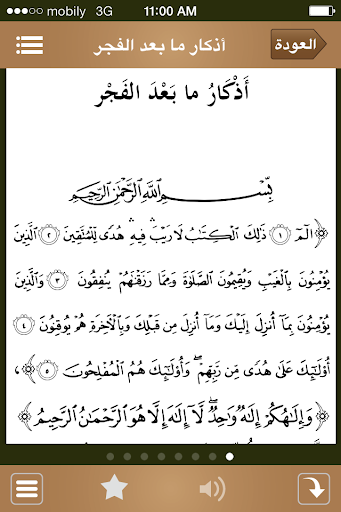 mobily 3G 11:00 AM
العودة أذكار ما بعد الفجر
أَذْكَارُ ما بَعْدَ الفَجْر
بِسْمِ اللَّهِ الرَّحْمَٰنِ الرَّحِيمِ
﴿الٓمٓ ١ ذَٰلِكَ الْكِتَابُ لَا رَيْبَ ۛ فِيهِ ۛ هُدًى لِّلْمُتَّقِينَ ٢ الَّذِينَ
يُؤْمِنُونَ بِالْغَيْبِ وَيُقِيمُونَ الصَّلَاةَ وَمِمَّا رَزَقْنَاهُمْ يُنفِقُونَ ٣ وَالَّذِينَ
يُؤْمِنُونَ بِمَا أُنزِلَ إِلَيْكَ وَمَا أُنزِلَ مِن قَبْلِكَ وَبِالْآخِرَةِ هُمْ يُوقِنُونَ ٤
أُولَٰئِكَ عَلَىٰ هُدًى مِّن رَّبِّهِمْ ۖ وَأُولَٰئِكَ هُمُ الْمُفْلِحُونَ ٥﴾،
﴿وَإِلَٰهُكُمْ إِلَٰهٌ وَاحِدٌ ۖ لَّا إِلَٰهَ إِلَّا هُوَ الرَّحْمَٰنُ الرَّحِيمُ